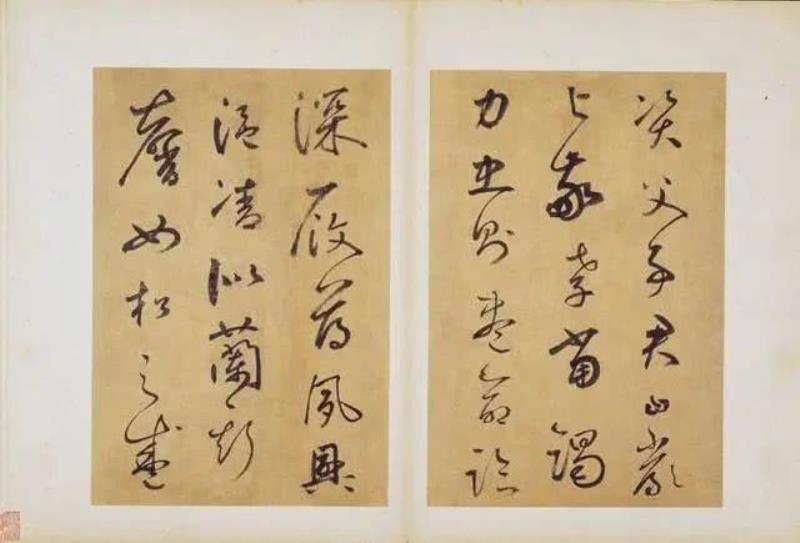 資父事君曰嚴
與敬孝當竭
力忠則盡命臨
深履薄夙興
溫凊似蘭斯
馨如松之盛